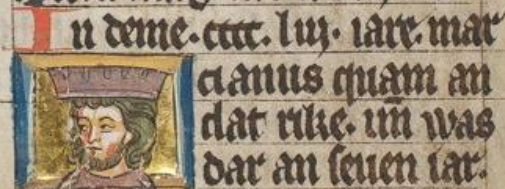 In deme·cccc·liij·iare mar
cianus quam an
dat rike·un̄ was
dar an seuen iar·